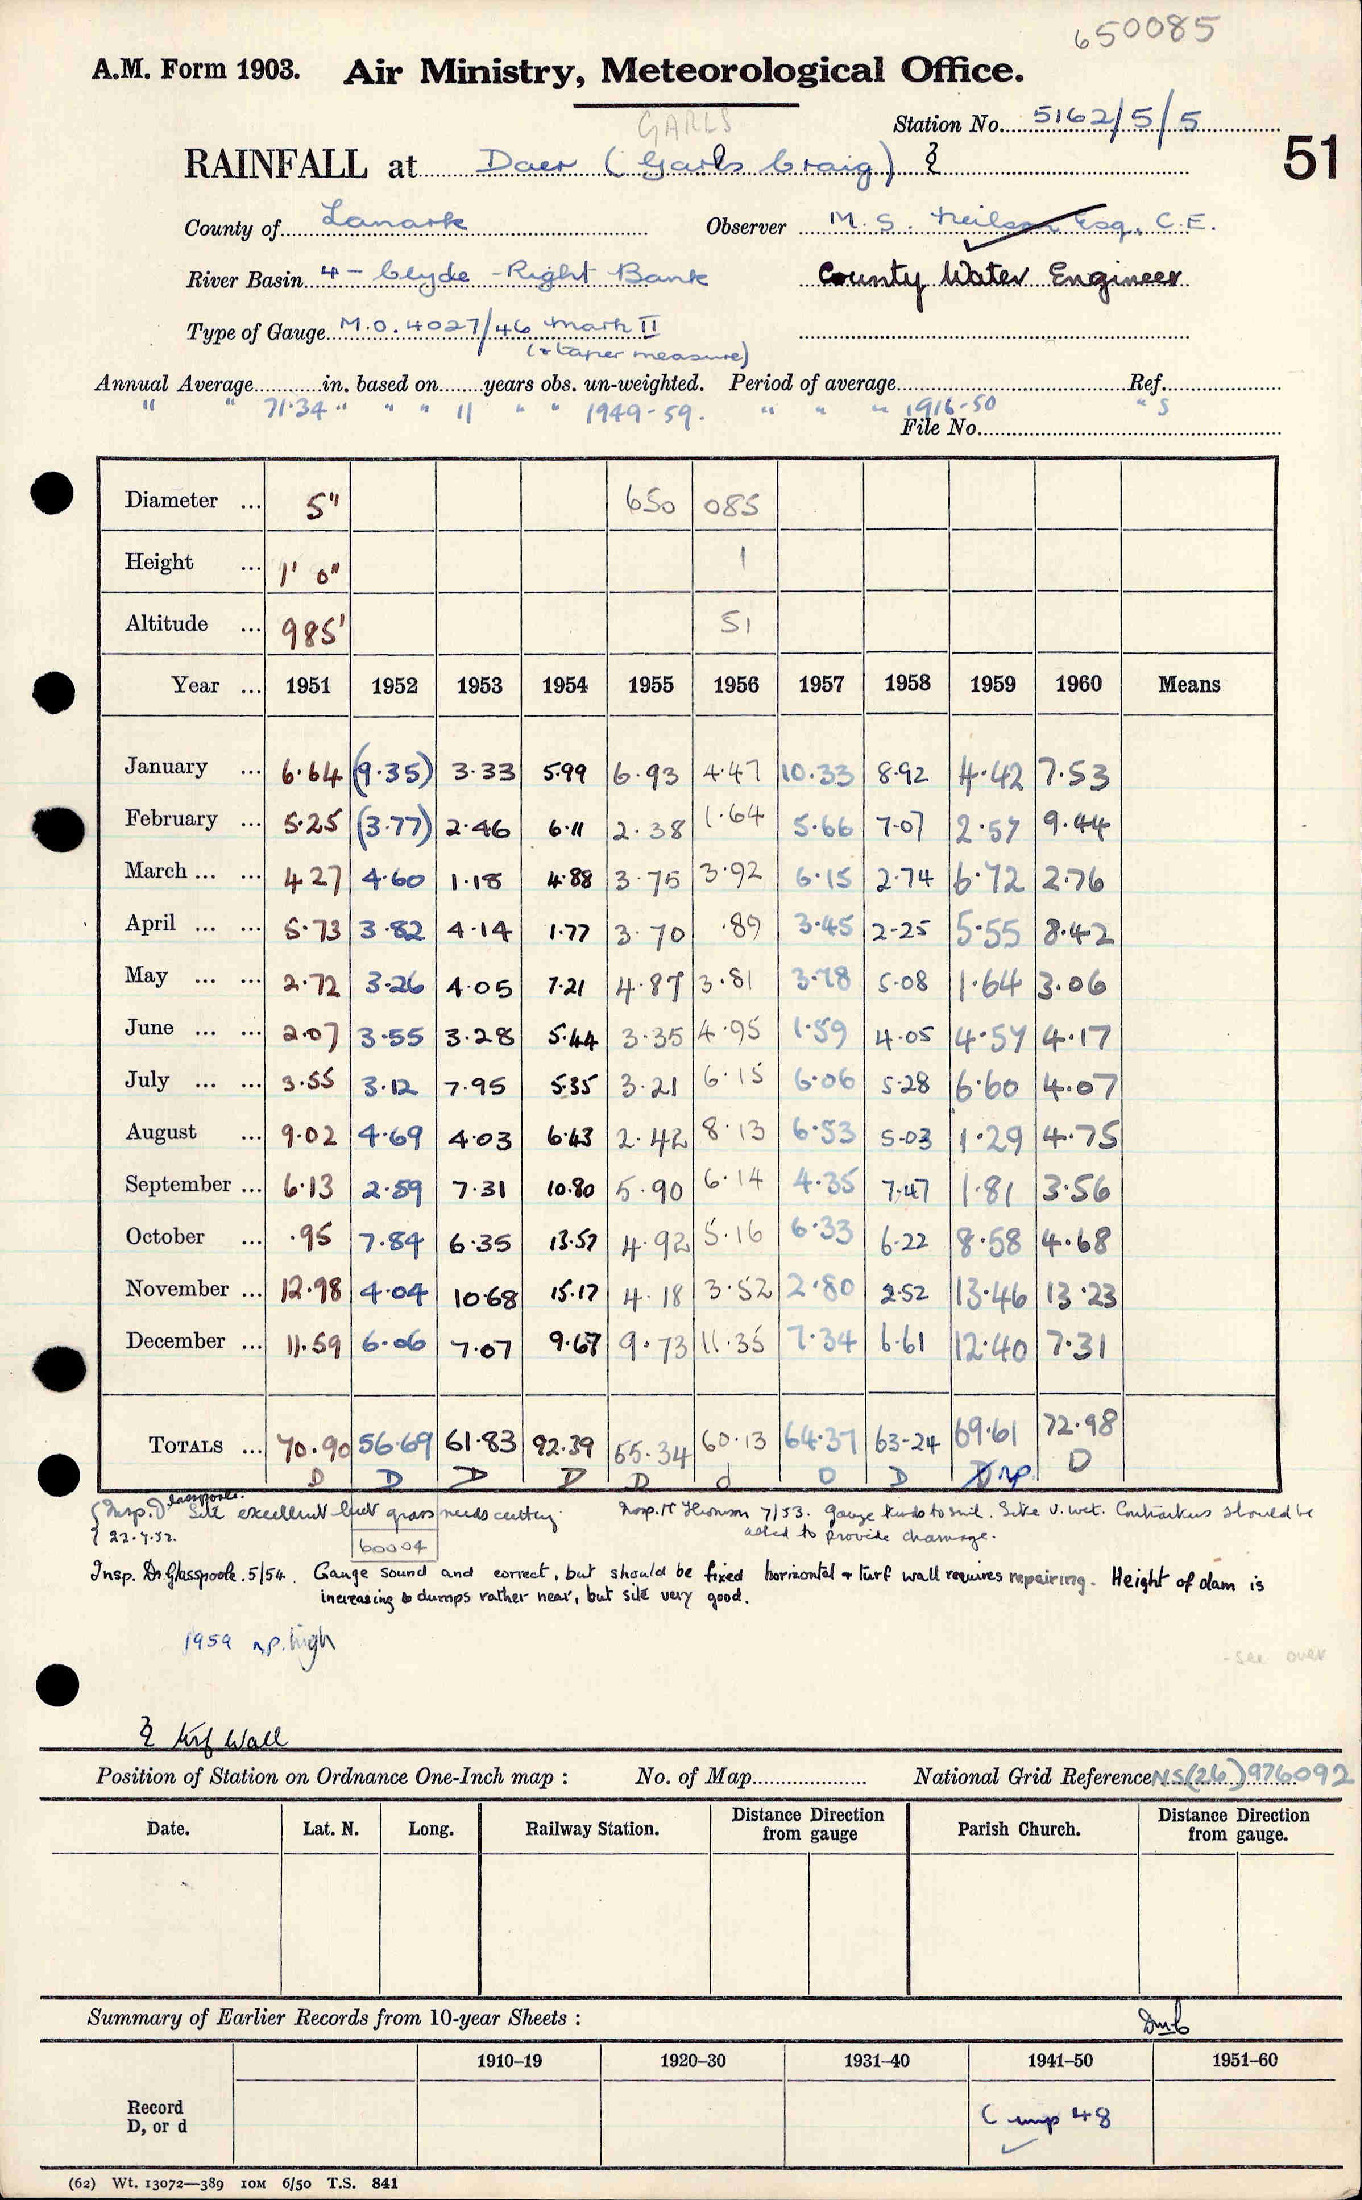 650085
A.M. Form 1903. Air Ministry, Meteorological Office.
GARLS
Station No. 5162/5/5
51
RAINFALL at Daer (Garls Craig) }
County of Lanark Observer M. S. Neilson Esq, C.E.
River Basin 4 - Clyde - Right Bank County Water Engineer
Type of Gauge M.O. 4027/46 Mark II
(+ taper measure)
Annual Average in. based on years obs. un-weighted. Period of average Ref.
" " 71.34 " " " 11 " " 1949-59. " " " 1916-50 " S
File No.
Diameter ... 5" 650 085
Height ... 1' 0" 1
Altitude ... 985' 51
Year ... 1951 1952 1953 1954 1955 1956 1957 1958 1959 1960 Means
January ... 6.64 (9.35) 3.33 5.99 6.93 4.47 10.33 8.92 4.42 7.53
February ... 5.25 (3.77) 2.46 6.11 2.38 1.64 5.66 7.07 2.57 9.44
March ... ... 4 27 4.60 1.18 4.88 3.75 3.92 6.15 2.74 6.72 2.76
April ... ... 5.73 3.82 4.14 1.77 3.70 .89 3.45 2-25 5.55 8.42
May ... ... 2.72 3.26 4.05 7.21 4.87 3.81 3.78 5.08 1.64 3.06
June ... ... 2.07 3.55 3.28 5.44 3.35 4.95 1.59 4.05 4.57 4.17
July ... ... 3.55 3.12 7.95 5.35 3.21 6.15 6.06 5.28 6.60 4.07
August ... 9.02 4.69 4.03 6.43 2.42 8.13 6.53 5.03 1.29 4.75
September ... 6.13 2.59 7.31 10.80 5.90 6.14 4.35 7.47 1.81 3.56
October ... .95 7.84 6.35 13.57 4.92 5.16 6.33 6.22 8.58 4.68
November ... 12.98 4.04 10.68 15.17 4.18 3.52 2.80 2.52 13.46 13.23
December ... 11.59 6.06 7.07 9.67 9.73 11.35 7.34 6.61 12.40 7.31
TOTALS ... 70.90 56.69 61.83 92.39 55.34 60.13 64.37 63-24 69.61 72.98
D D D D D d D D D np. D
{ Insp. Dr Glasspoole. Site excellent but grass needs cutting. Insp. Mr Thomson 7/53. Gauge tends to sink. Site v. wet. Contractors should be
{ 22.7.52. asked to provide drainage.
60004
Insp. Dr Glasspoole. 5/54. Gauge sound and correct, but should be fixed horizontal + turf wall requires repairing. Height of dam is
increasing & dumps rather near, but site very good.
1959 np. high
- see over
} turf wall
Position of Station on Ordnance One-Inch map : No. of Map National Grid Reference NS(26)976092
Date. Lat. N. Long. Railway Station. Distance Direction from gauge Parish Church. Distance Direction from gauge.
Summary of Earlier Records from 10-year Sheets :
1910–19 1920–30 1931–40 1941–50 1951–60
Record
D, or d
C 48
(62) Wt. 13072—389 10M 6/50 T.S. 841